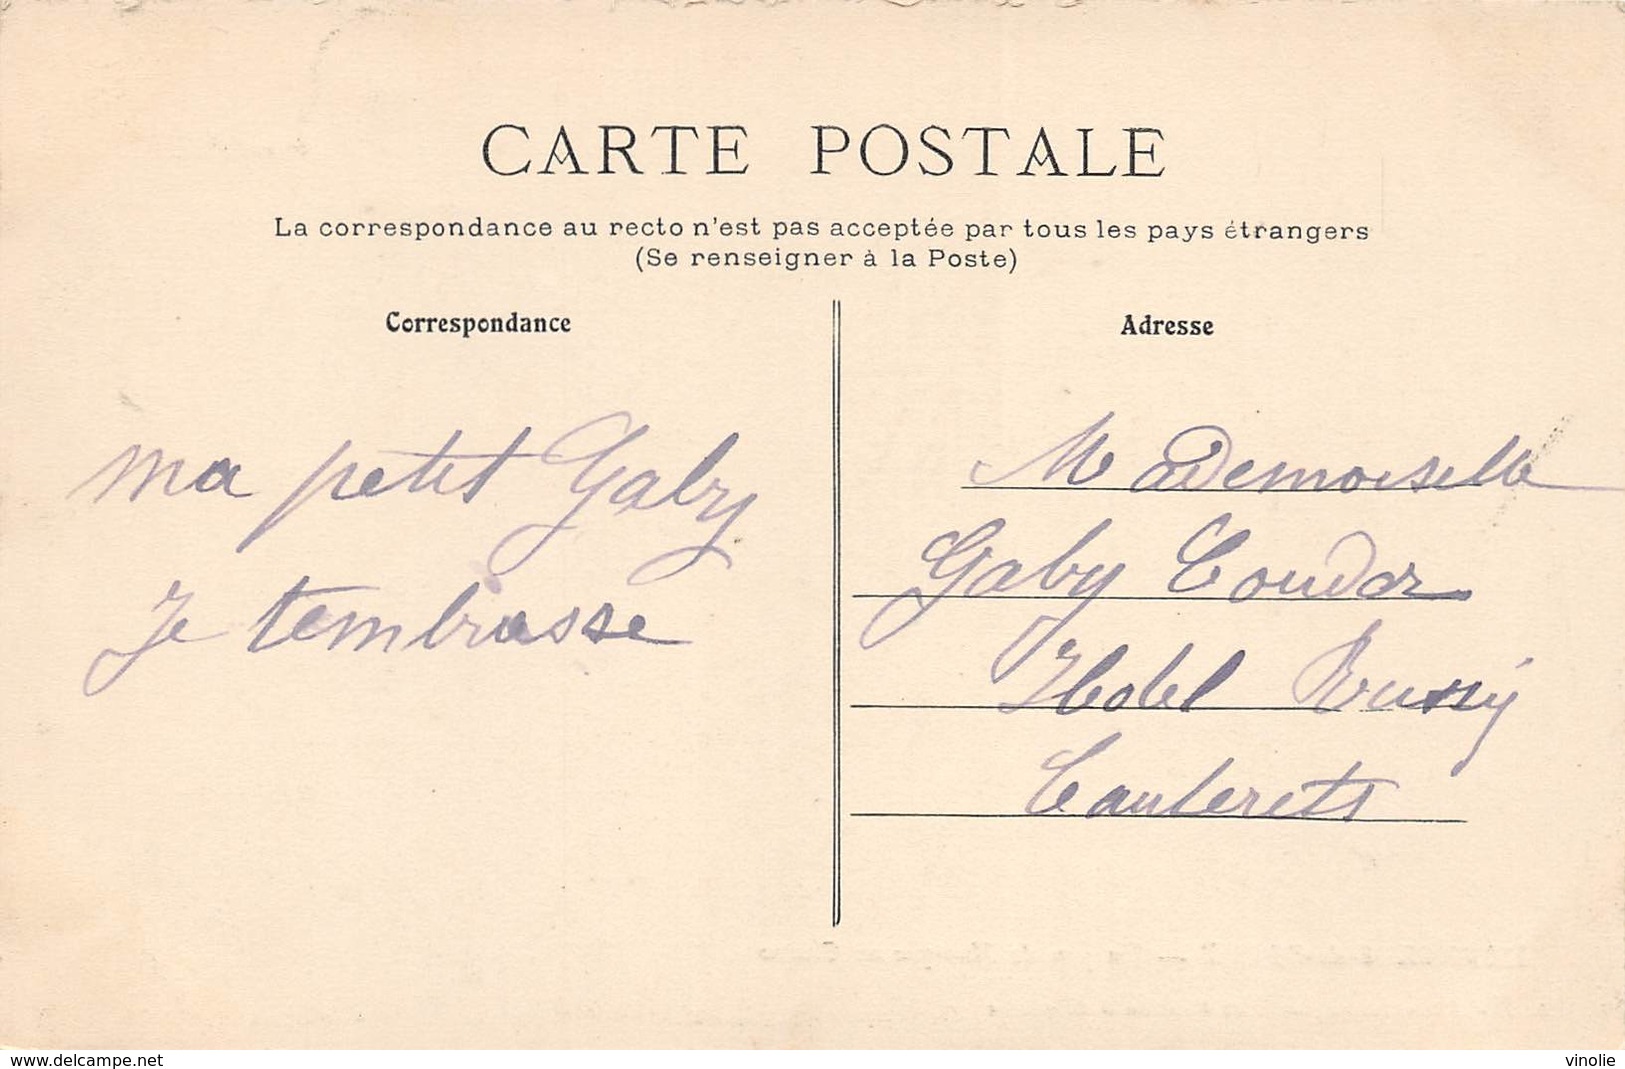 CARTE POSTALE
La correspondance au recto n'est pas acceptée par tous les pays étrangers
(Se renseigner à la Poste)
Correspondance
ma petit Gaby
Je tembrasse
Adresse
Mademoiselle
Gaby
Hotel Russy
Cauterets
www.delcampe.net
vinolie